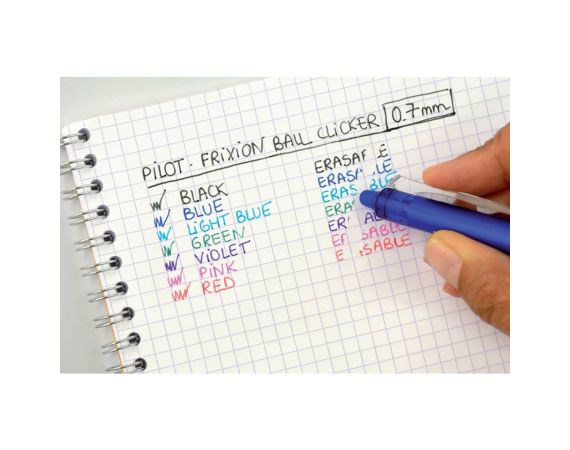 PILOT. FRIXION BALL CLICKER 0.7mm
BLACK ERASA E
BLUE ERASA LE
LIGHT BLUE ERAS BLE
GREEN ERA
VIOLET ER
PINK E SABLE
RED E SABLE